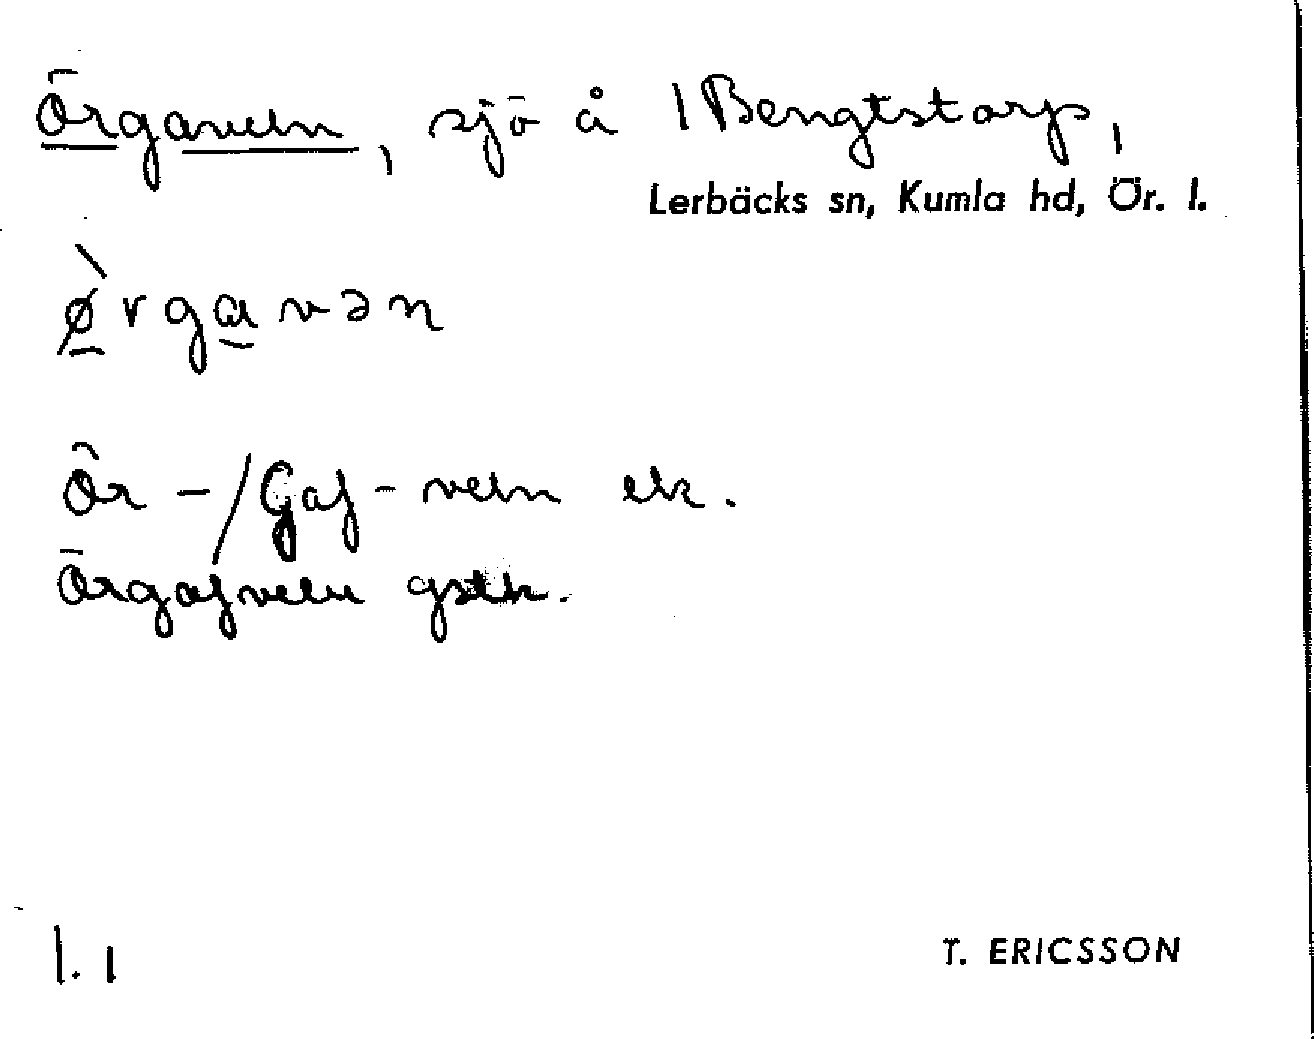 Örgaveln, sjö å 1 Bengtstorp,
Lerbäcks sn, Kumla hd, Ör. l.
ǿ̱rga̱vən
Ör -/Gaf - veln ek.
Örgafveln gstk.
1. 1
T. ERICSSON